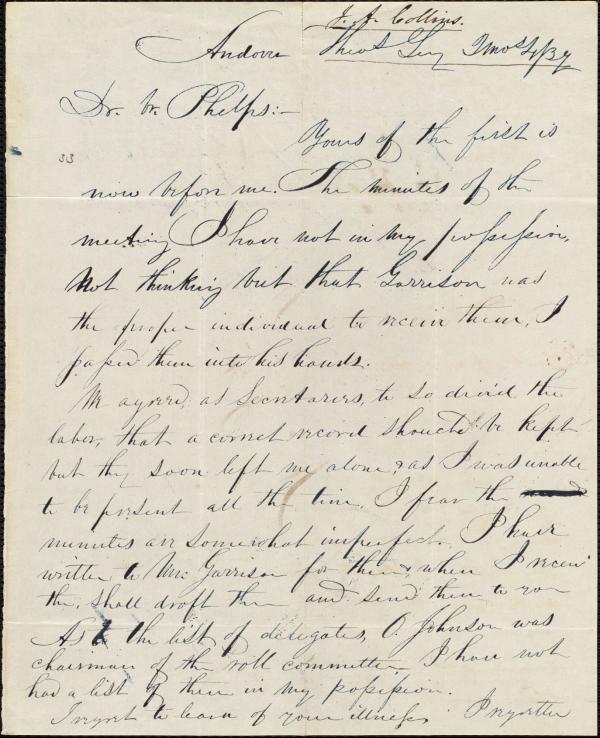 J. A. Collins.
Andover Theol Sem 7mo 4/37
Dr. Br. Phelps:—
Yours of the first is
33
now before me. The minutes of the
meeting I have not in my possession,
Not thinking but that Garrison was
the proper individual to receive them, I
passed them into his hands.
We agreed as Secretaries, to so divid the
labor, that a correct record should be kept
but they soon left me alone, & as I was unable
to be present all the time, I fear the
minutes are somewhat imperfect. I have
written to Mr. Garrison for them, & when I receiv
the, shall draft them and send them to you
As to the list of delegates, O. Johnson was
chairman of the roll committee I have not
had a list of them in my possession.
I regret to learn of your illness.